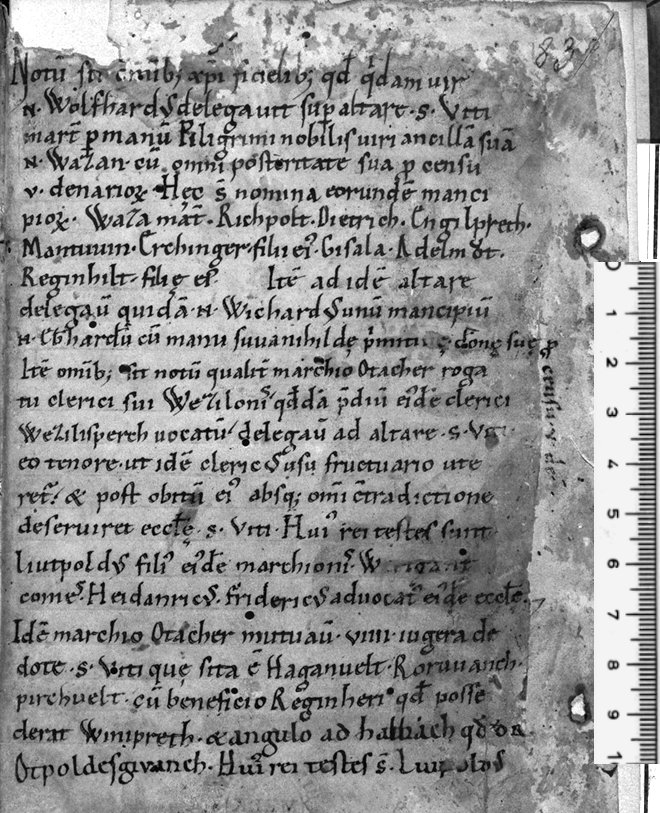 Notū sit om̄ib; xp̄i fidelib; qd̄ q̇dam uir
.N. Wolfhardꝰ delegauit sup altare .S. Viti
mart̄ ꝑ manū Piligrimi nobilis uiri ancillā suā
.N. Wazan. cū omni posteritate sua ꝑ censu
.v. denarioꝝ. Hec s̄ nomina eorundē manci
pioꝝ. Waza mat̄. Richpolt. Dietrich. Engilpreth.
Mantuuin. Erchinger. filii eiꝰ. Gisala. Adelmot.
Reginhilt. filię eiꝰ. Itē ad idē altare
delegaū quidā .N. Wichardꝰ unū mancipiū
.N. Ebhardū cū manu suuanihildę dōnę suę ꝑ
censu .v. den̄
Itē om̄ib; sit notū qualit̄ marchio Otacher roga
tu clerici sui Weziloniꝰ qd̄dā p̄diū eiꝰdē clerici
Wezilisperch uocatū delegaū ad altare .S. Viti
eo tenore. ut idē clericꝰ usu fructuario ute
ret̄. & post obitū eiꝰ absq; om̄i c̄tradictione
deseruiret eccłę .S. Viti. Huiꝰ rei testes sunt
Liutpoldꝰ filiꝰ eiꝰdē marchioniꝰ.
comeꝰ. Heidanricꝰ. Fridericꝰ aduocatꝰ eiꝰdē eccłę.
Idē marchio Otacher mutuaū. viiii iugera de
dote .S. Viti quę sita ē Haganuelt. Roruuanch.
pirchuelt. cū beneficio Reginheri qd̄ posse
derat Winipreth. & angulo ad halbach
Otpoldesgivanch. Huiꝰ rei testes s̄. Liutpoldꝰ